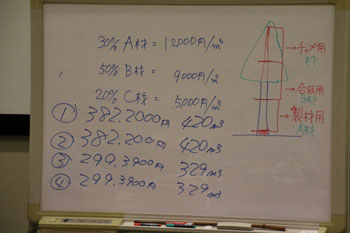 30% A材 = 12000円/m²
50% B材 = 9000円/m²
20% C材 = 5,000円/m²
① 382.2000円 420m3
② 382.200円 420m3
③ 299.3900円 329m3
④ 299.3900円 329m3
→チップ用
→合板用
B材
→製材用
A材